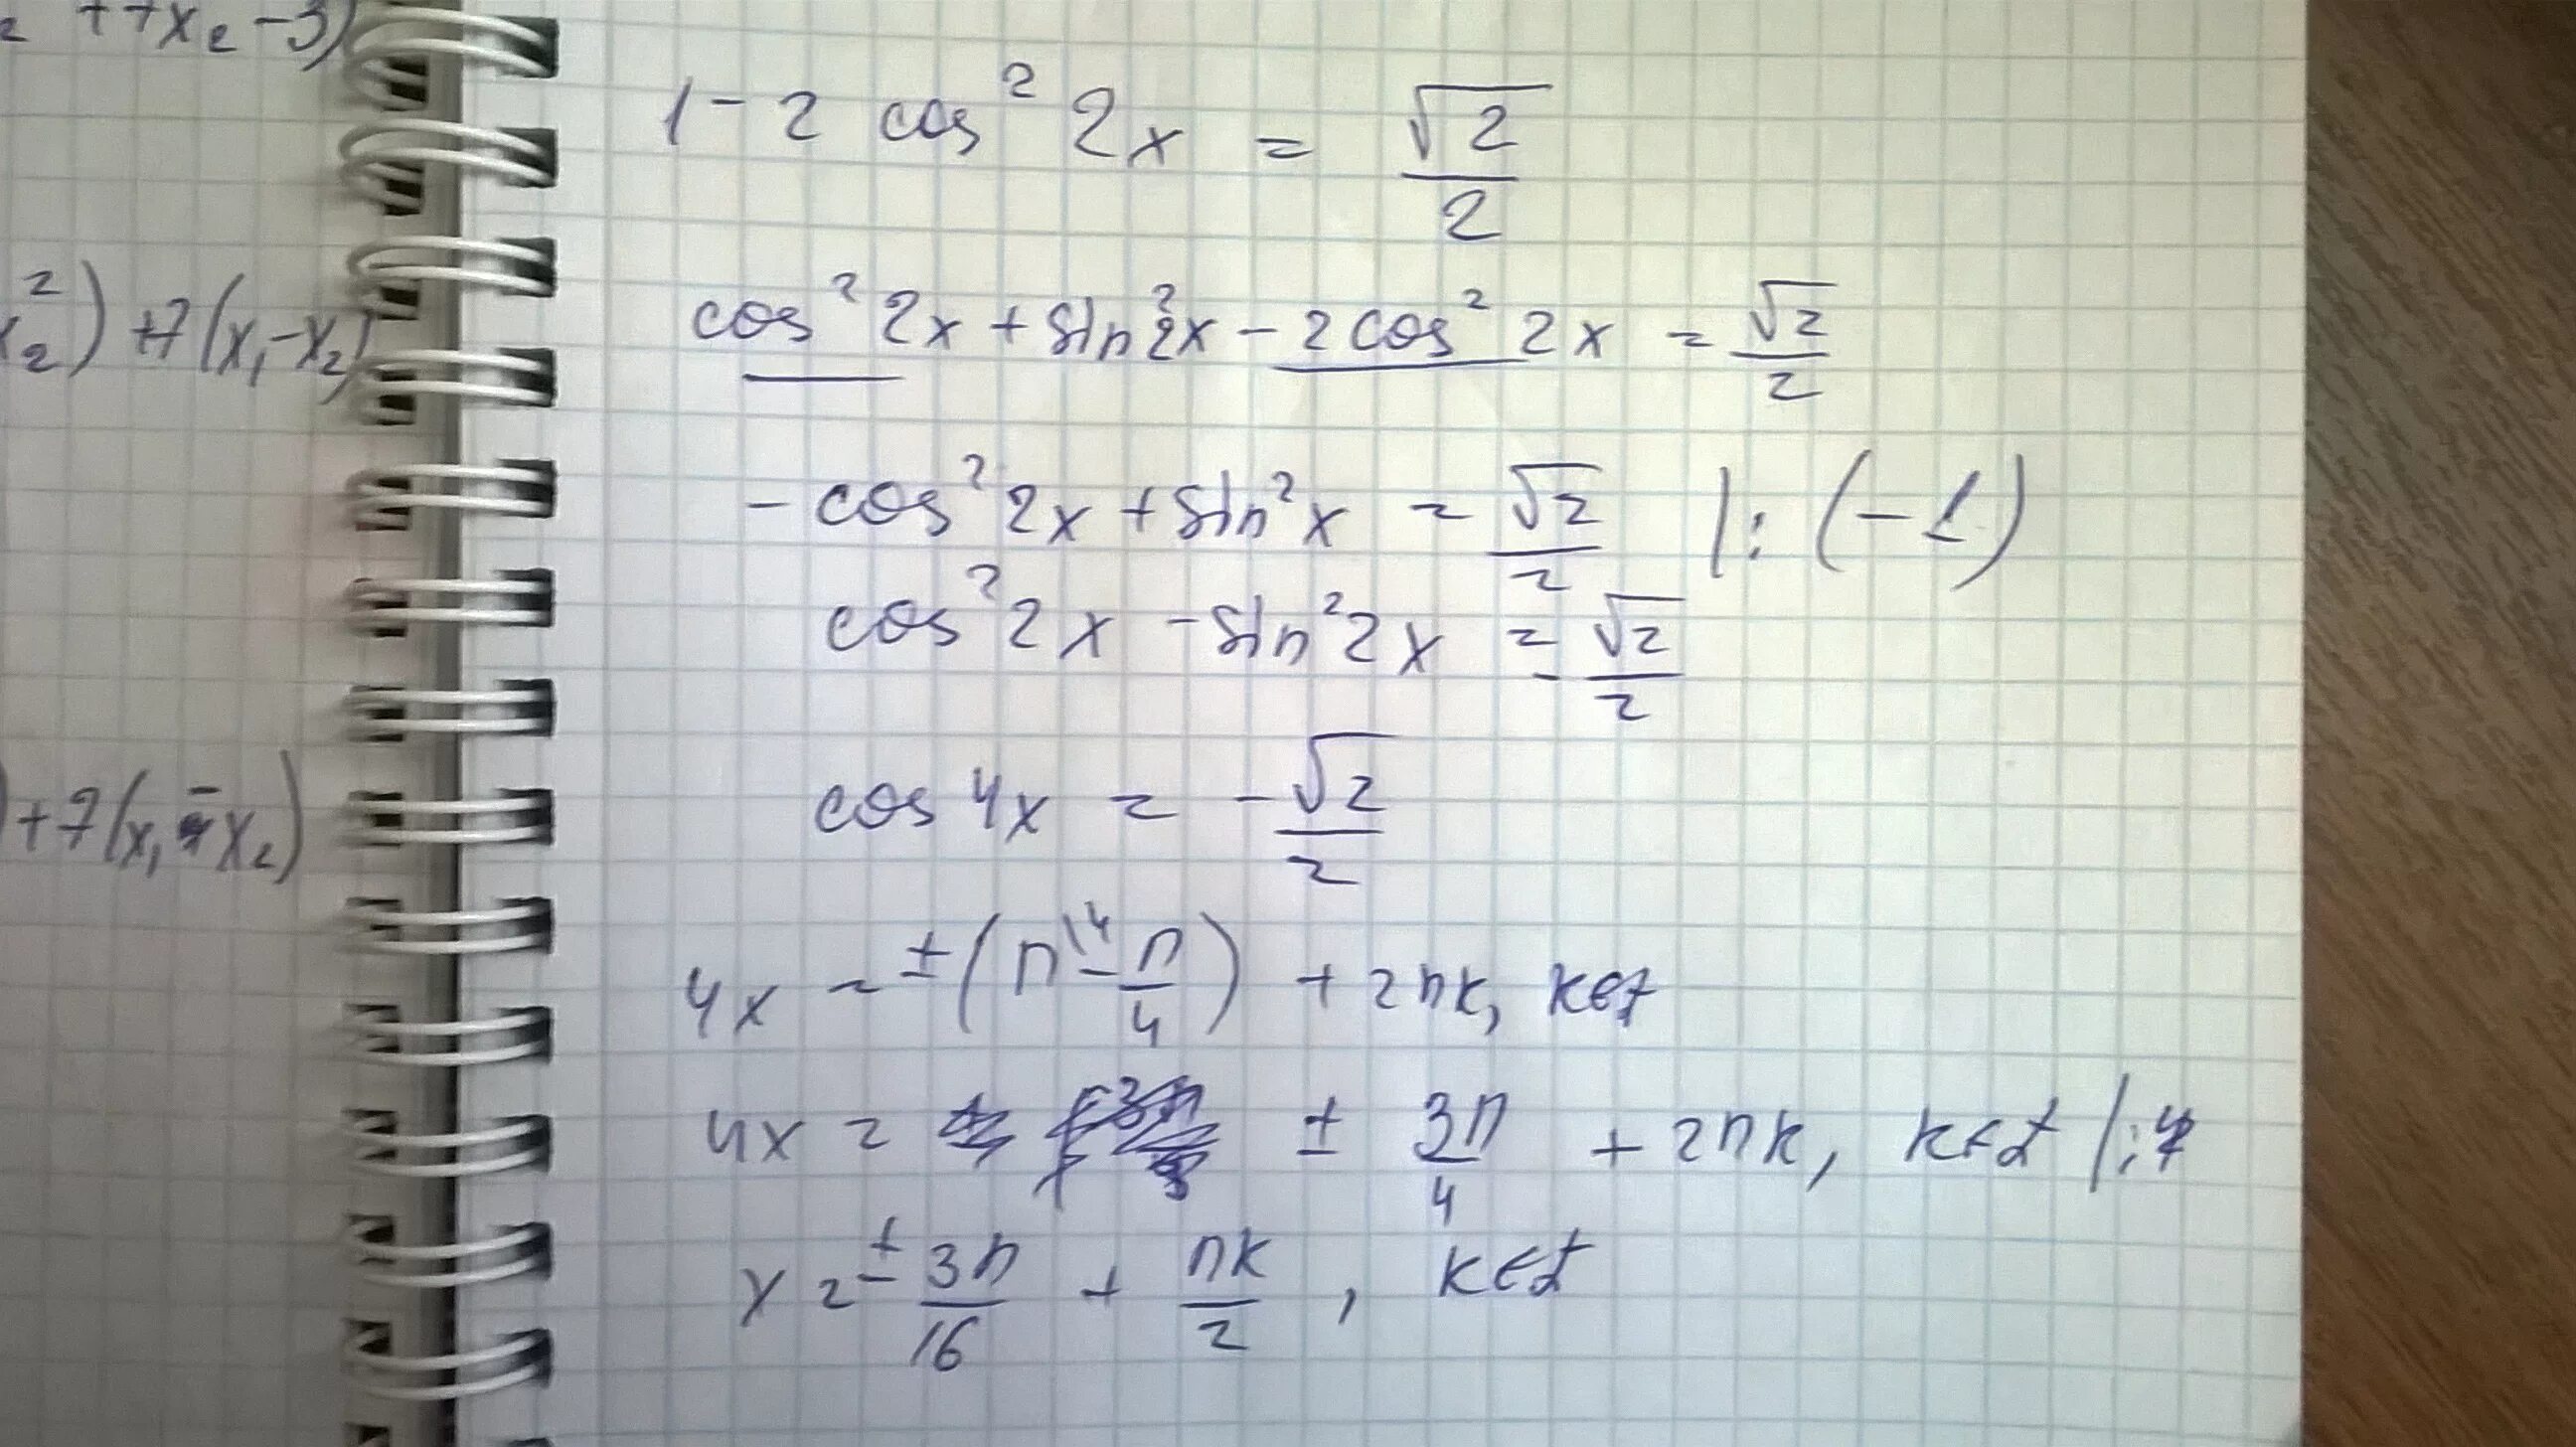 ₂ +7x₂ -3)
x₂²) +7(x₁-x₂)
) +7(x₁ - x₂)
1 - 2 cos² 2x = √2/2
cos² 2x + sin² 2x - 2 cos² 2x = √2/2
- cos² 2x + sin² x = √2/2 | : (-1)
cos² 2x - sin² 2x = - √2/2
cos 4x = - √2/2
4x = ± (π\4 - π/4) + 2πk, k∈Z
4x = ± 3π/4 + 2πk, k∈Z | : 4
x = ± 3π/16 + πk/2 , k∈Z